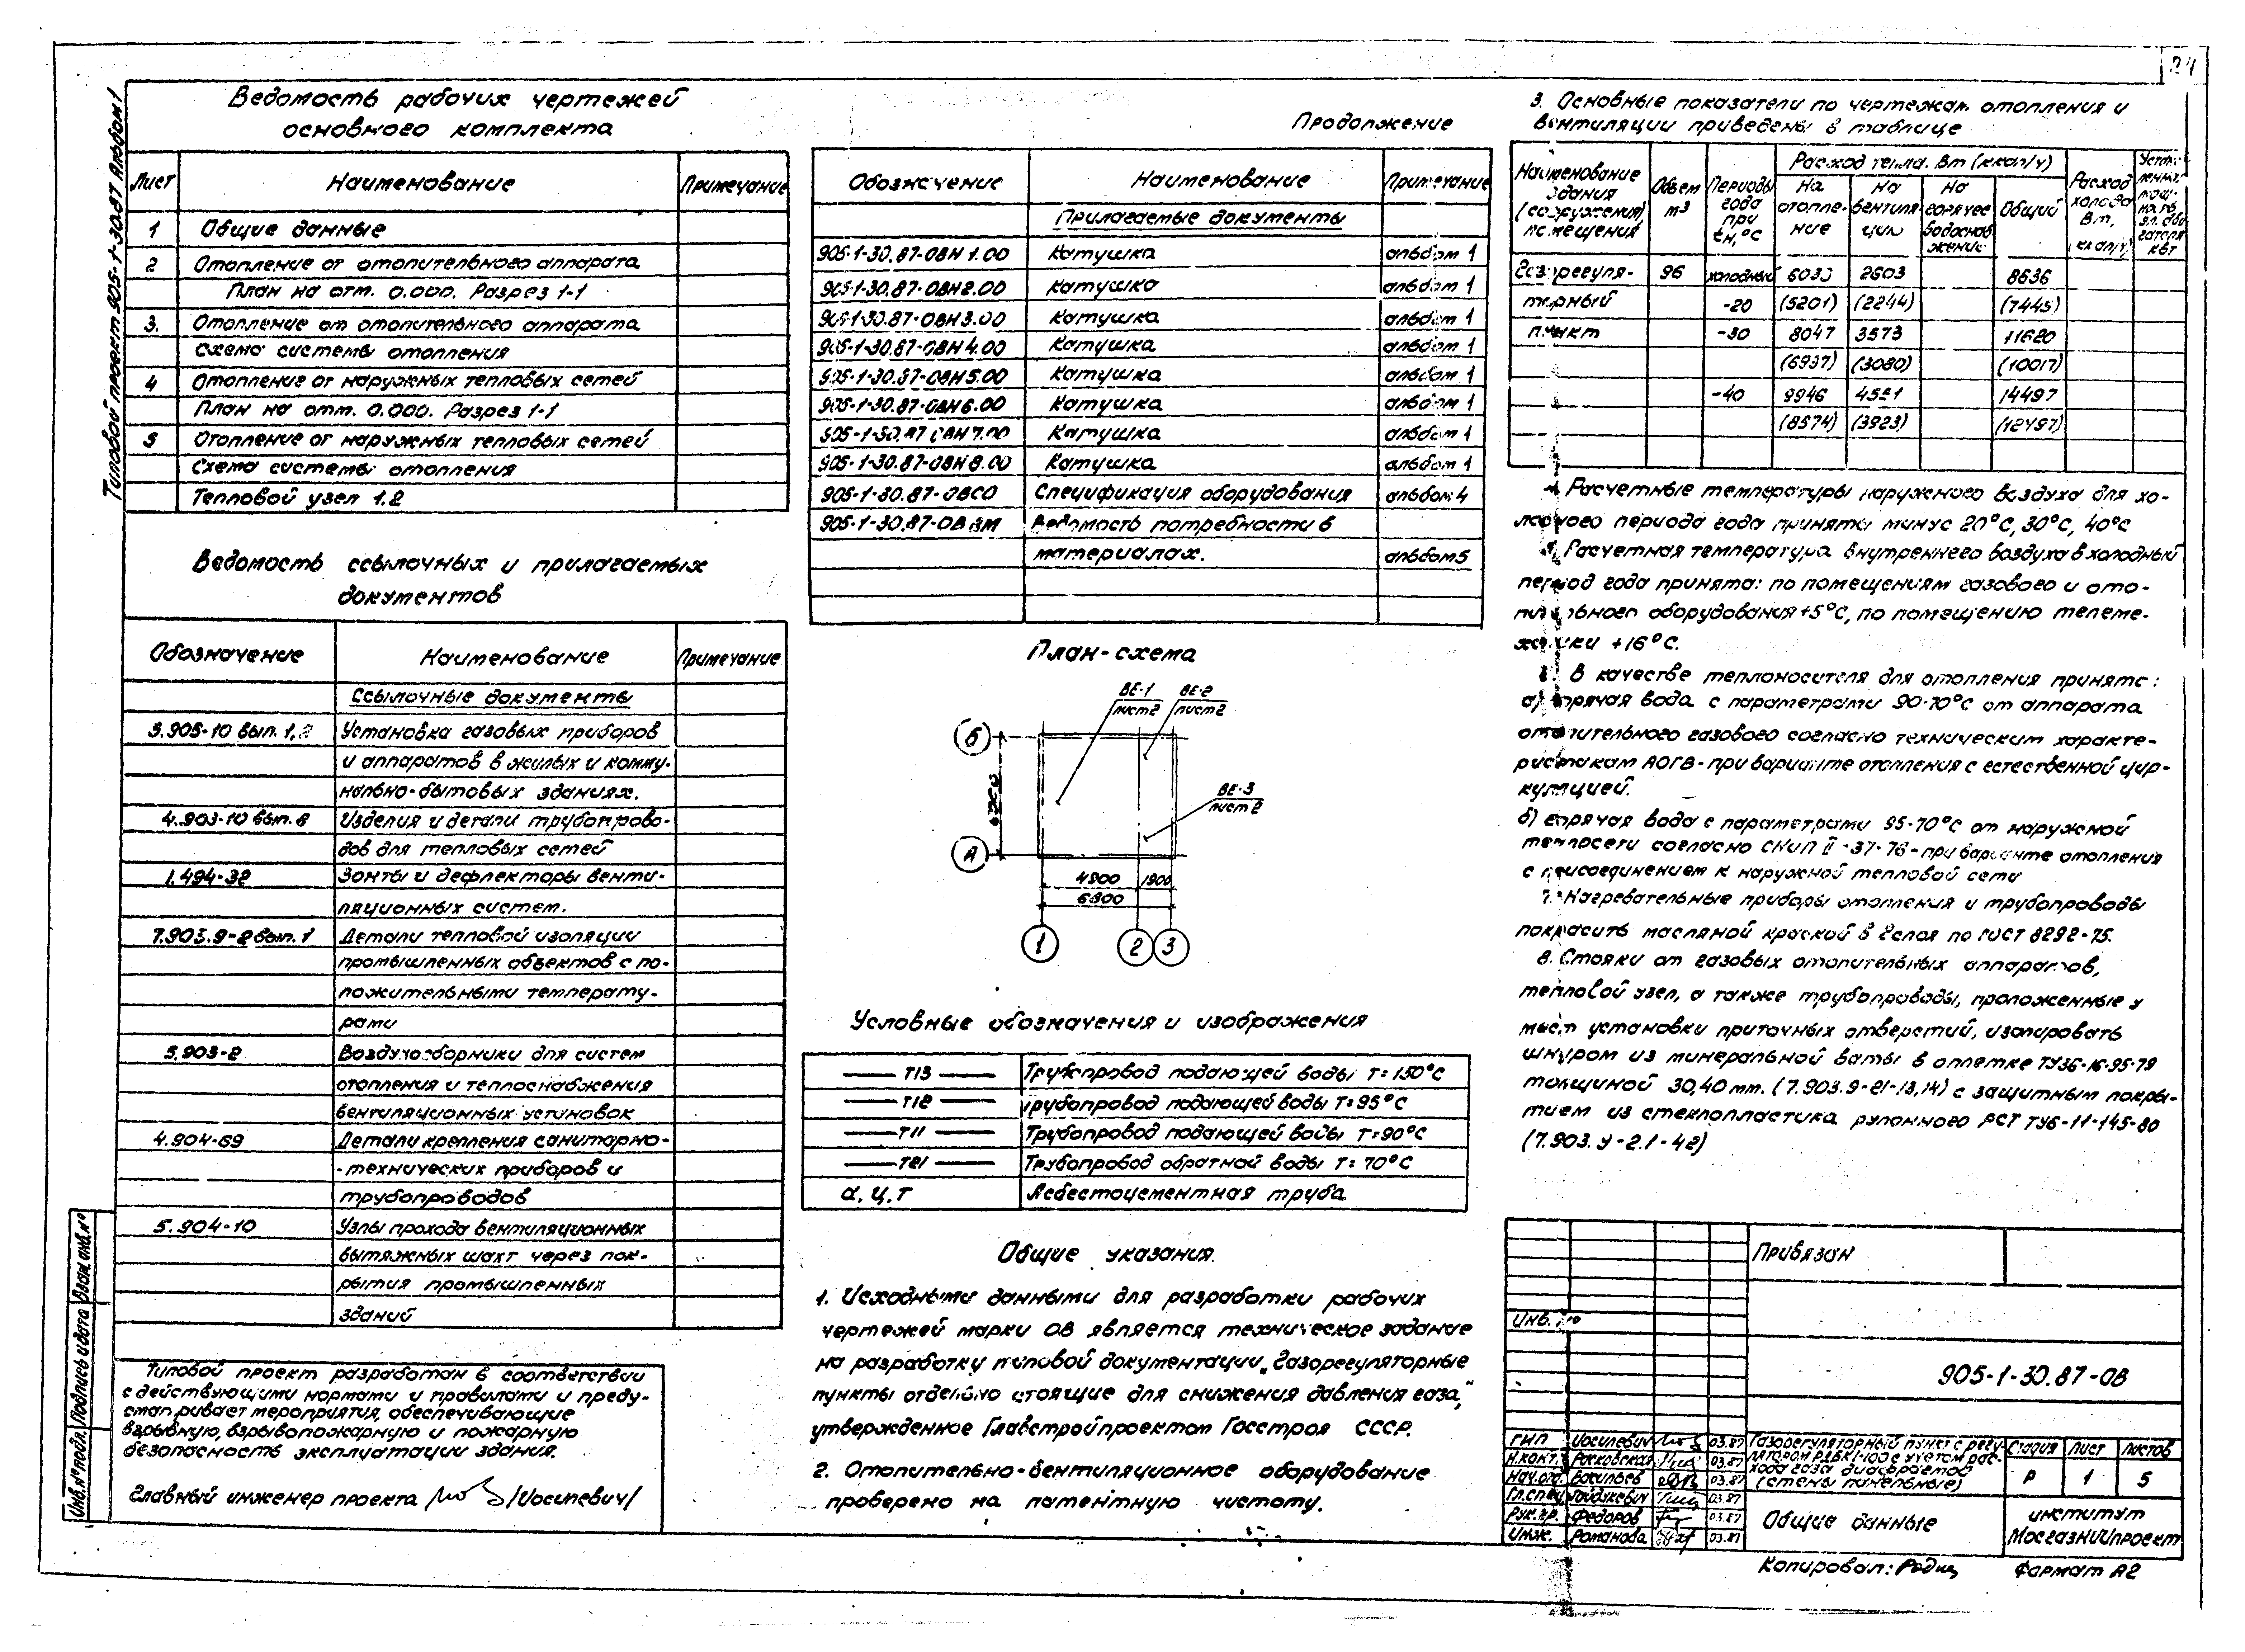 Типовой проект 905-1-30.87 Альбом 1
Ведомость рабочих чертежей
основного комплекта
Лист Наименование Примечание
1 Общие данные
2 Отопление от отопительного аппарата
План на отм. 0.000. Разрез 1-1
3. Отопление от отопительного аппарата
Схема системы отопления
4 Отопление от наружных тепловых сетей
План на отм. 0.000. Разрез 1-1
5 Отопление от наружных тепловых сетей
Схема системы отопления
Тепловой узел 1.2
Ведомость ссылочных и прилагаемых
документов
Обозначение Наименование Примечание
Ссылочные документы
5.905-10 вып. 1,2 Установка газовых приборов
и аппаратов в жилых и комму-
нально-бытовых зданиях.
4.903-10 вып. 8 Изделия и детали трубопрово-
дов для тепловых сетей
1.494-32 Зонты и дефлекторы венти-
ляционных систем.
7.903.9-2 вып. 1 Детали тепловой изоляции
промышленных объектов с по-
ложительными температу-
рами
5.903-2 Воздухосборники для систем
отопления и теплоснабжения
вентиляционных установок
4.904-69 Детали крепления санитарно-
-технических приборов и
трубопроводов
5.904-10 Узлы прохода вентиляционных
вытяжных шахт через пок-
рытия промышленных
зданий
Типовой проект разработан в соответствии
с действующими нормами и правилами и преду-
сматривает мероприятия, обеспечивающие
взрывную, взрывопожарную и пожарную
безопасность эксплуатации здания.
Главный инженер проекта /Иосилевич/
Инв.№ подл. Подпись и дата Взам. инв. №
Продолжение
Обозначение Наименование Примечание
Прилагаемые документы
905-1-30.87-ОВН 1.00 Катушка альбом 1
905-1-30.87-ОВН 2.00 Катушка альбом 1
905-1-30.87-ОВН 3.00 Катушка альбом 1
905-1-30.87-ОВН 4.00 Катушка альбом 1
905-1-30.87-ОВН 5.00 Катушка альбом 1
905-1-30.87-ОВН 6.00 Катушка альбом 1
905-1-30.87 ОВН 7.00 Катушка альбом 1
905-1-30.87-ОВН 8.00 Катушка альбом 1
905-1-30.87-ОВСО Спецификация оборудования альбом 4
905-1-30.87-ОВ ВМ Ведомость потребности в
материалах. альбом 5
План-схема
ВЕ-1 ВЕ-2
лист 2 лист 2
Б
ВЕ-3
лист 2
А
4900 1900
6800
1 2 3
Условные обозначения и изображения
Т13 Трубопровод подающей воды Т=150°С
Т12 трубопровод подающей воды Т=95°С
Т11 Трубопровод подающей воды Т=90°С
Т21 Трубопровод обратной воды Т=70°С
а.ц.т Асбестоцементная труба
Общие указания.
1. Исходными данными для разработки рабочих
чертежей марки ОВ является техническое задание
на разработку типовой документации „Газорегуляторные
пункты отдельно стоящие для снижения давления газа,"
утвержденное Главстройпроектом Госстроя СССР.
2. Отопительно-вентиляционное оборудование
проверено на патентную чистоту.
3. Основные показатели по чертежам отопления и
вентиляции приведены в таблице
Наименование здания (сооружения), помещения Объем м³ Периоды года при tн, °С Расход тепла. Вт (ккал/ч) Расход холода Вт, (ккал/ч)
На отопле-ние На вентиля-цию На горячее водоснаб-жение Общий
Газорегуля- 96 холодный 2603 8636
торный -20 (5201) (2244) (7445)
пункт -30 8047 3573 11620
(6937) (3080) (10017)
-40 9946 4551 14497
(8574) (3923) (12497)
4. Расчетные температуры наружного воздуха для хо-
лодного периода года приняты минус 20°С, 30°С, 40°С
5. Расчетная температура внутреннего воздуха в холодный
период года принята: по помещениям газового и ото-
пительного оборудования +5°С, по помещению телеме-
ханики +16°С.
6. В качестве теплоносителя для отопления принято:
а) горячая вода с параметрами 90-70°С от аппарата
отопительного газового согласно техническим характе-
ристикам АОГВ - при варианте отопления с естественной цир-
куляцией.
б) горячая вода с параметрами 95-70°С от наружной
теплосети согласно СНиП II-37-76 - при варианте отопления
с присоединением к наружной тепловой сети
7. Нагревательные приборы отопления и трубопроводы
покрасить масляной краской в 2 слоя по ГОСТ 8292-75.
8. Стояки от газовых отопительных аппаратов,
тепловой узел, а также трубопроводы, проложенные у
мест установки приточных отверстий, изолировать
шнуром из минеральной ваты в оплетке ТУ36-16-95-79
толщиной 30,40 мм. (7.903.9-21-13,14) с защитным покры-
тием из стеклопластика рулонного РСТ ТУ6-11-145-80
(7.903.9-2.1-42)
Привязан
Инв. №
905-1-30.87-ОВ
ГИП Иосилевич 03.87
Н.конт. Расковская 03.87
Нач.отд. Васильев 03.87
Гл.спец. 03.87
Рук.гр. Федоров 03.87
Инж. Романова 03.87
Газорегуляторный пункт с регу-
лятором РДБК1-100 с учетом рас-
хода газа диафрагмой
(стены панельные)
Стадия Лист Листов
Р 1 5
Общие данные
институт
МосгазНИИпроект
Копировал: Формат А2